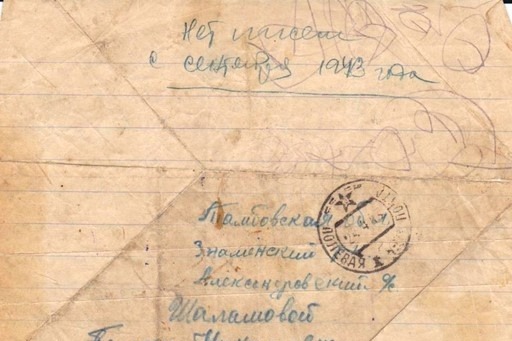 Нет писем
с сентября 1943 года
Тамбовская обл
Знаменский
Александровский с/с
Шаламовой
ПОЛЕВАЯ ПОЧТА